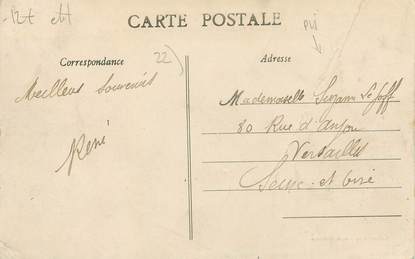 Bt etit
pli
CARTE POSTALE
22)
Correspondance
Adresse
Meilleurs Souvenirs
René
Mademoiselle Suzanne Le Goff
80 Rue d'Anjou
Versailles
Seine-et-Oise